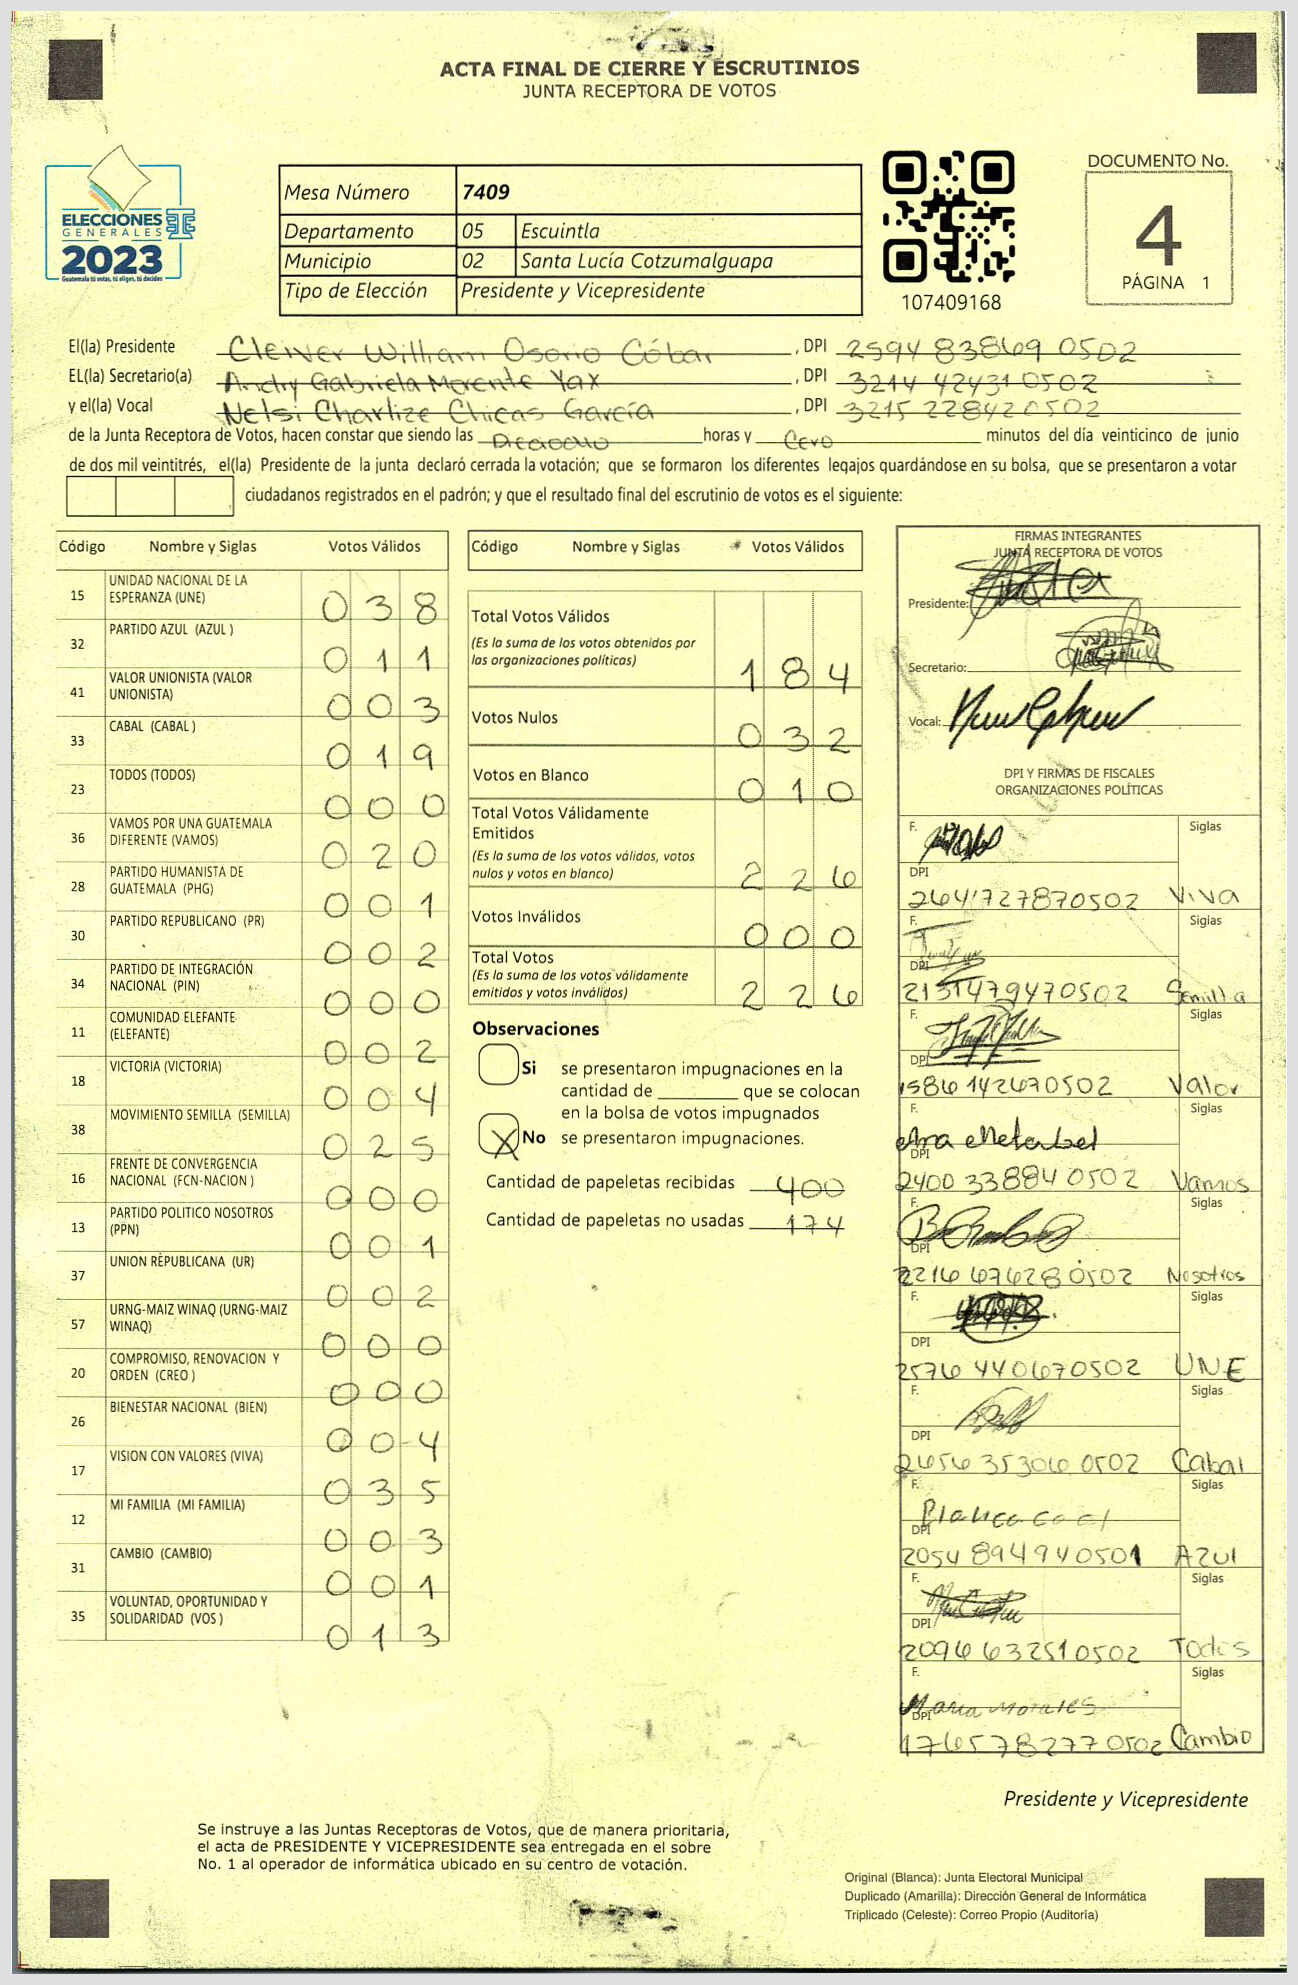 ACTA FINAL DE CIERRE Y ESCRUTINIOS
JUNTA RECEPTORA DE VOTOS
ELECCIONES
GENERALES
2023
Guatemala tú votas, tú eliges, tú decides
Mesa Número 7409
Departamento 05 Escuintla
Municipio 02 Santa Lucía Cotzumalguapa
Tipo de Elección Presidente y Vicepresidente
107409168
DOCUMENTO No.
4
PÁGINA 1
El(la) Presidente Cleiver William Osorio Cóbar , DPI 2594 83869 0502
EL(la) Secretario(a) Andry Gabriela Morente Yax , DPI 3214 42431 0502
y el(la) Vocal Nelsi Charlize Chicas García , DPI 3215 22842 0502
de la Junta Receptora de Votos, hacen constar que siendo las Dieciocho horas y Cero minutos del día veinticinco de junio
de dos mil veintitrés, el(la) Presidente de la junta declaró cerrada la votación; que se formaron los diferentes legajos guardándose en su bolsa, que se presentaron a votar
ciudadanos registrados en el padrón; y que el resultado final del escrutinio de votos es el siguiente:
Código Nombre y Siglas Votos Válidos
15 UNIDAD NACIONAL DE LA
ESPERANZA (UNE) 038
32 PARTIDO AZUL (AZUL ) 011
41 VALOR UNIONISTA (VALOR
UNIONISTA) 003
33 CABAL (CABAL ) 019
23 TODOS (TODOS) 000
36 VAMOS POR UNA GUATEMALA
DIFERENTE (VAMOS) 020
28 PARTIDO HUMANISTA DE
GUATEMALA (PHG) 001
30 PARTIDO REPUBLICANO (PR) 002
34 PARTIDO DE INTEGRACIÓN
NACIONAL (PIN) 000
11 COMUNIDAD ELEFANTE
(ELEFANTE) 002
18 VICTORIA (VICTORIA) 004
38 MOVIMIENTO SEMILLA (SEMILLA) 025
16 FRENTE DE CONVERGENCIA
NACIONAL (FCN-NACION ) 000
13 PARTIDO POLITICO NOSOTROS
(PPN) 001
37 UNION REPUBLICANA (UR) 002
57 URNG-MAIZ WINAQ (URNG-MAIZ
WINAQ) 000
20 COMPROMISO, RENOVACION Y
ORDEN (CREO ) 000
26 BIENESTAR NACIONAL (BIEN) 004
17 VISION CON VALORES (VIVA) 035
12 MI FAMILIA (MI FAMILIA) 003
31 CAMBIO (CAMBIO) 001
35 VOLUNTAD, OPORTUNIDAD Y
SOLIDARIDAD (VOS ) 013
Código Nombre y Siglas Votos Válidos
Total Votos Válidos
(Es la suma de los votos obtenidos por
las organizaciones políticas) 184
Votos Nulos 032
Votos en Blanco 010
Total Votos Válidamente
Emitidos
(Es la suma de los votos válidos, votos
nulos y votos en blanco) 226
Votos Inválidos 000
Total Votos
(Es la suma de los votos válidamente
emitidos y votos inválidos) 226
Observaciones
Si se presentaron impugnaciones en la
cantidad de ________ que se colocan
en la bolsa de votos impugnados
X No se presentaron impugnaciones.
Cantidad de papeletas recibidas 400
Cantidad de papeletas no usadas 174
FIRMAS INTEGRANTES
JUNTA RECEPTORA DE VOTOS
Presidente:
Secretario:
Vocal:
DPI Y FIRMAS DE FISCALES
ORGANIZACIONES POLÍTICAS
F. Siglas
DPI
2641727870502 Viva
F. Siglas
DPI
2131479470502 Semilla
F. Siglas
DPI
1586142670502 Valor
F. Siglas
Ana
DPI
2400 33884 0502 Vamos
F. Siglas
DPI
2216 67628 0502 Nosotros
F. Siglas
DPI
2576 440670502 UNE
F. Siglas
DPI
2656 35306 0502 Cabal
F. Siglas
Blanca
DPI
2054 894940501 Azul
F. Siglas
DPI
2096 632510502 Todos
F. Siglas
Maria Morales
DPI
1765782770502 Cambio
Presidente y Vicepresidente
Se instruye a las Juntas Receptoras de Votos, que de manera prioritaria,
el acta de PRESIDENTE Y VICEPRESIDENTE sea entregada en el sobre
No. 1 al operador de informática ubicado en su centro de votación.
Original (Blanca): Junta Electoral Municipal
Duplicado (Amarilla): Dirección General de Informática
Triplicado (Celeste): Correo Propio (Auditoría)